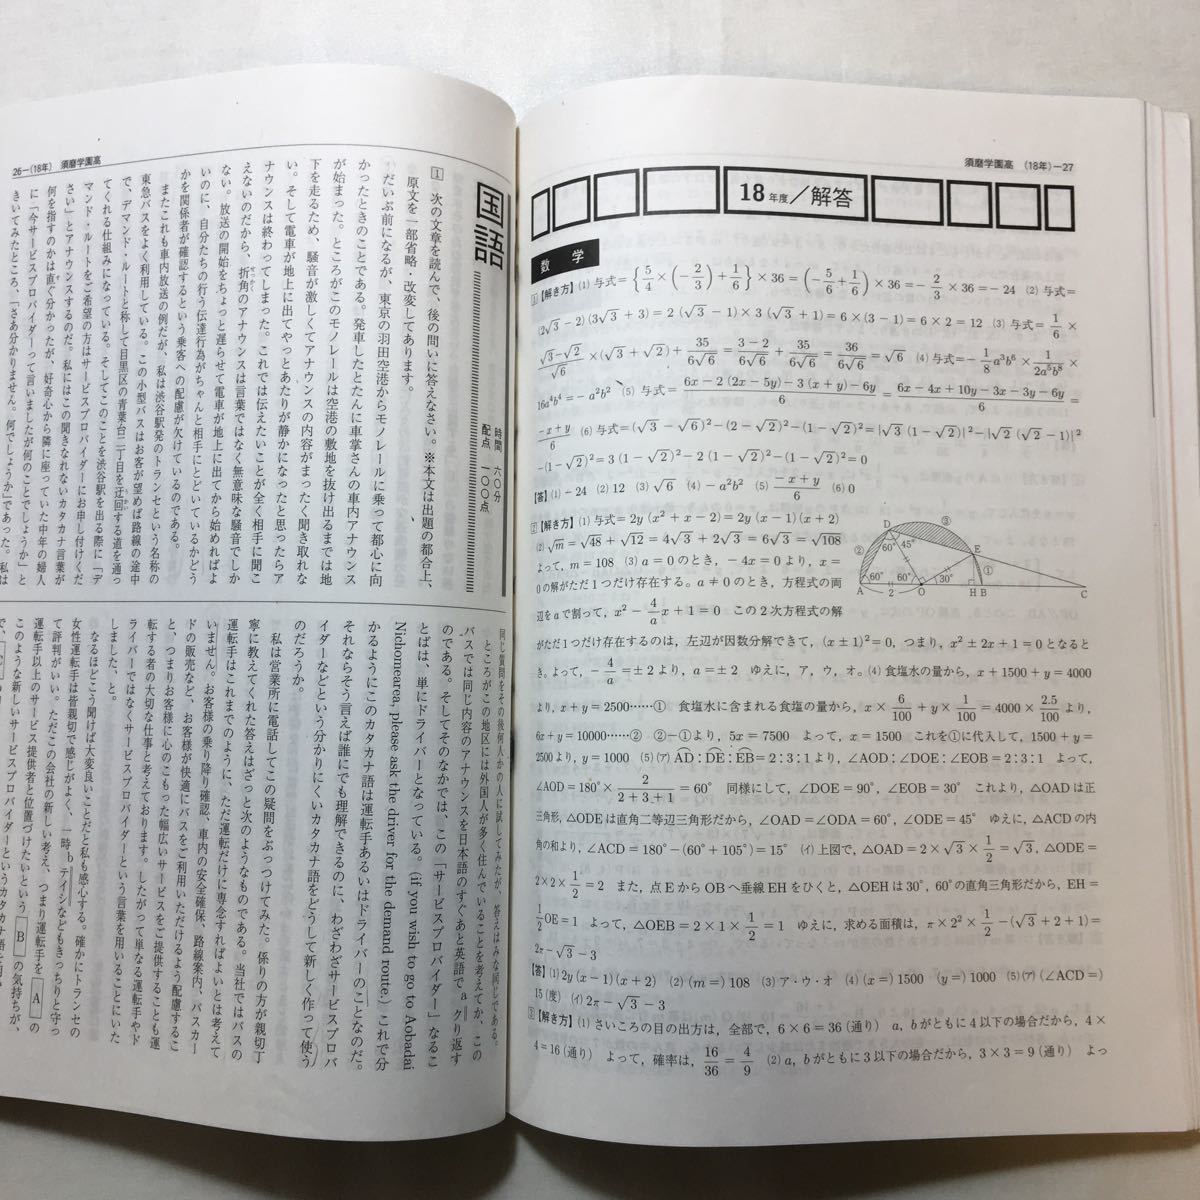 26―(18年) 須磨学園高
国語
時間 六〇分
配点 一〇〇点
1 次の文章を読んで、後の問いに答えなさい。※本文は出題の都合上、
原文を一部省略・改変してあります。
だいぶ前になるが、東京の羽田空港からモノレールに乗って都心に向
かったときのことである。発車したとたんに車掌さんの車内アナウンス
が始まった。ところがこのモノレールは空港の敷地を抜け出るまでは地
下を走るため、騒音が激しくてアナウンスの内容がまったく聞き取れな
い。そして電車が地上に出てやっとあたりが静かになったと思ったらア
ナウンスは終わってしまった。これでは伝えたいことが全く相手に聞こ
えないのだから、折角のアナウンスは言葉ではなく無意味な騒音でしか
ない。放送の開始をちょっと遅らせて電車が地上に出てから始めればよ
いのに、自分たちの行う伝達行為がちゃんと相手にとどいているかどう
かを関係者が確認するという乗客への配慮が欠けているのである。
またこれも車内放送の例だが、私は渋谷駅発のトランセという名称の
東急バスをよく利用している。この小型バスはお客が望めば路線の途中
で、デマンド・ルートと称して目黒区の青葉台二丁目を迂回する道を通っ
てくれる仕組みになっている。そしてこのことを渋谷駅を出る際に「デ
マンド・ルートをご希望の方はサービスプロバイダーにお申し付けくだ
さい」とアナウンスするのだ。私にはこの聞きなれないカタカナ言葉が
何を指すのかは直ぐ分かったのだが、好奇心から隣に座っていた中年の婦人
に「今サービスプロバイダーって言いましたが何のことでしょうか」と
きいてみたところ、「さあ分かりません。何でしょうか」であった。私は
同じ質問をその後何人かの人に試してみたが、答えはみな同じである。
ところがこの地区には外国人が多く住んでいることを考えてか、この
バスでは同じ内容のアナウンスを日本語のすぐあと英語で a クり返す
のである。そしてそのなかでは、この「サービスプロバイダー」なるこ
とばは、単にドライバーとなっている。(if you wish to go to Aobadai
Nichomearea, please ask the driver for the demand route.) これで分
かるようにこのカタカナ語は運転手あるいはドライバーのことなのだ。
それならそう言えば誰にでも理解できるのに、わざわざサービスプロバ
イダーなどという分かりにくいカタカナ語をどうして新しく作って使う
のだろうか。
私は営業所に電話してこの疑問をぶっつけてみた。係りの方が親切丁
寧に教えてくれた答えはざっと次のようなものである。当社ではバスの
運転手はこれまでのように、ただ運転だけに専念すればよいとは考えて
いません。お客様の乗り降り確認、車内の安全確保、路線案内、バスカー
ドの販売など、お客様が快適にバスをご利用いただけるよう配慮するこ
と、つまりお客様に心のこもった幅広いサービスをご提供することも運
転する者の大切な仕事と考えております。したがって単なる運転手やド
ライバーではなくサービスプロバイダーという言葉を用いることにいた
しました、と。
なるほどこう聞けば大変良いことだと私も感心する。確かにトランセの
女性運転手は皆親切で感じがよく、一時 b テイシなどもきっちりと守っ
て評判がいい。ただこの会社の新しい考え、つまり運転手を A の
運転手以上のサービス提供者と位置づけたいという B の気持ちが、
このような新しいサービスプロバイダーというカタカナ語を用い
須磨学園高 (18年)―27
18年度/解答
数学
1【解き方】(1) 与式 = {5/4 × (−2/3) + 1/6} × 36 = (−5/6 + 1/6) × 36 = −2/3 × 36 = −24 (2) 与式 =
(2√3 − 2)(3√3 + 3) = 2(√3 − 1) × 3(√3 + 1) = 6 × (3 − 1) = 6 × 2 = 12 (3) 与式 = 1/6 ×
(√3−√2)/√6 × (√3 + √2) + 35/6√6 = (3 − 2)/6√6 + 35/6√6 = 36/6√6 = √6 (4) 与式 = −1/8 a³b⁶ × 1/2a⁵b⁸ ×
16a⁴b⁴ = −a²b² (5) 与式 = (6x − 2(2x − 5y) − 3(x + y) − 6y)/6 = (6x − 4x + 10y − 3x − 3y − 6y)/6 =
(−x + y)/6 (6) 与式 = (√3 − √6)² − (2 − √2)² − (1 − √2)² = |√3(1 − √2)|² − |√2(√2 − 1)|²
− (1 − √2)² = 3(1 − √2)² − 2(1 − √2)² − (1 − √2)² = 0
【答】(1) −24 (2) 12 (3) √6 (4) −a²b² (5) (−x + y)/6 (6) 0
2【解き方】(1) 与式 = 2y(x² + x − 2) = 2y(x − 1)(x + 2)
(2) √m = √48 + √12 = 4√3 + 2√3 = 6√3 = √108
よって、m = 108 (3) a = 0 のとき、−4x = 0 より、x =
0 の解がただ1つだけ存在する。a ≠ 0 のとき、方程式の両
辺を a で割って、x² − 4/a x + 1 = 0 この2次方程式の解
がただ1つだけ存在するのは、左辺が因数分解できて、(x ± 1)² = 0、つまり、x² ± 2x + 1 = 0 となると
き。よって、−4/a = ±2 より、a = ±2 ゆえに、ア、ウ、オ。(4) 食塩水の量から、x + 1500 + y = 4000
より、x + y = 2500……① 食塩水に含まれる食塩の量から、x × 6/100 + y × 1/100 = 4000 × 2.5/100 より、
6x + y = 10000……② ②−①より、5x = 7500 よって、x = 1500 これを①に代入して、1500 + y =
2500 より、y = 1000 (5)(ア) AD : DE : EB = 2 : 3 : 1 より、∠AOD : ∠DOE : ∠EOB = 2 : 3 : 1 よって、
∠AOD = 180° × 2/(2 + 3 + 1) = 60° 同様にして、∠DOE = 90°、∠EOB = 30° これより、△OAD は正
三角形、△ODE は直角二等辺三角形だから、∠OAD = ∠ODA = 60°、∠ODE = 45° ゆえに、△ACD の内
角の和より、∠ACD = 180° − (60° + 105°) = 15° (イ) 上図で、△OAD = 2 × √3 × 1/2 = √3、△ODE =
2 × 2 × 1/2 = 2 また、点 E から OB へ垂線 EH をひくと、△OEH は30°、60°の直角三角形だから、EH =
1/2 OE = 1 よって、△OEB = 2 × 1 × 1/2 = 1 ゆえに、求める面積は、π × 2² × 1/2 − (√3 + 2 + 1) =
2π − √3 − 3
【答】(1) 2y(x − 1)(x + 2) (2) (m =) 108 (3) ア・ウ・オ (4) (x =) 1500 (y =) 1000 (5)(ア) (∠ACD =)
15(度) (イ) 2π − √3 − 3
3【解き方】(1) さいころの目の出方は、全部で、6 × 6 = 36(通り) a、b がともに4以下の場合だから、4 ×
4 = 16(通り) よって、確率は、16/36 = 4/9 (2) a、b がともに3以下の場合だから、3 × 3 = 9(通り) よっ
D ③ E ② ① 60° 45° 60° 60° 30° A 2 O H B C